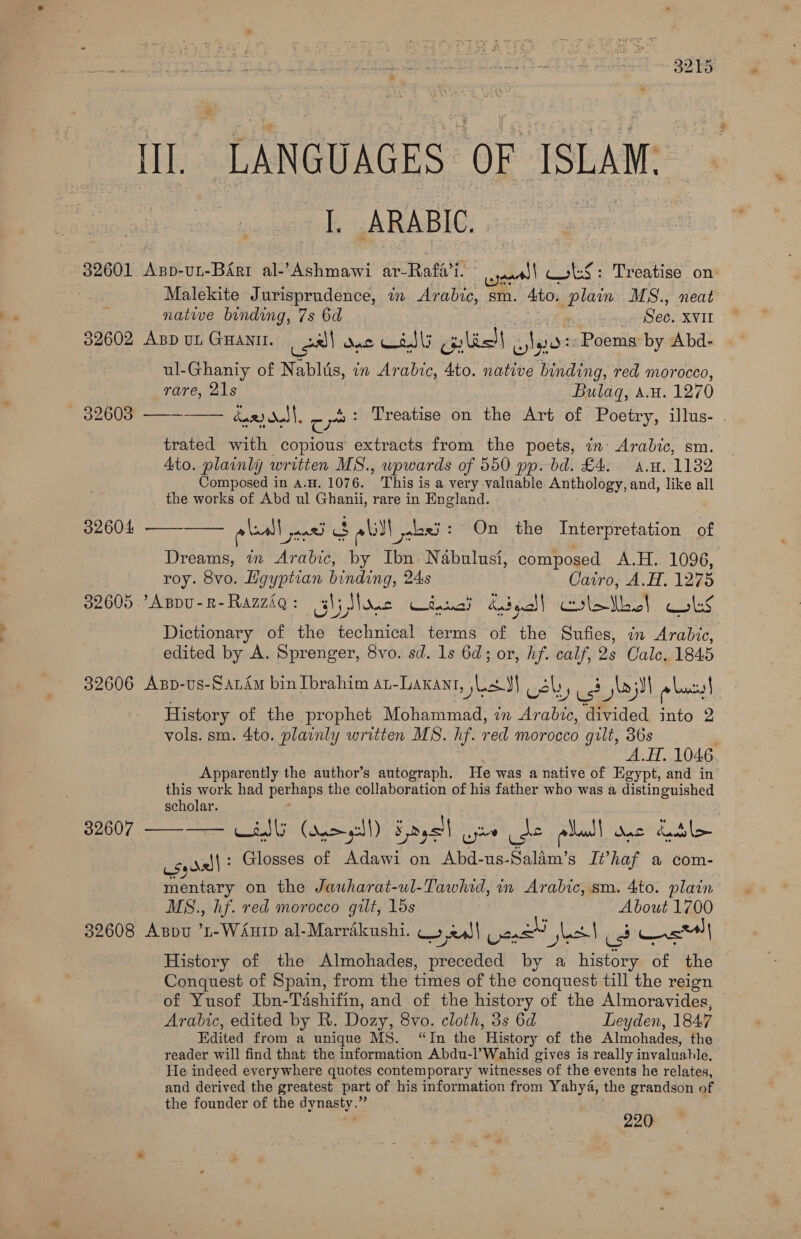 3215
III. LANGUAGES OF ISLAM.
I. ARABIC.
32601 ABD-UL-BÁRI al-'Ashmawi ar-Rafá'i. كتاب : Treatise on
Malekite Jurisprudence, in Arabic, sm. 4to. plain MS., neat
native binding, 7s 6d Sec. XVII
32602 ABD UL GHANII. ديوان الحقايق تاليف عبد الغني : Poems by Abd-
ul-Ghaniy of Nablús, in Arabic, 4to. native binding, red morocco,
rare, 21s Bulaq, A.H. 1270
32603 ——— شرح البديعية : Treatise on the Art of Poetry, illus-
trated with copious extracts from the poets, in Arabic, sm.
4to. plainly written MS., upwards of 550 pp. bd. £4. A.H. 1132
Composed in A.H. 1076. This is a very valuable Anthology, and, like all
the works of Abd ul Ghanii, rare in England.
32604 ——— تعطير الانام في تعبير المنام : On the Interpretation of
Dreams, in Arabic, by Ibn Nábulusí, composed A.H. 1096,
roy. 8vo. Egyptian binding, 24s Cairo, A.H. 1275
32605 'ABDU-R-RAZZÁQ: كتاب اصطلاحات الصوفية تصنيف عبدالرزاق
Dictionary of the technical terms of the Sufies, in Arabic,
edited by A. Sprenger, 8vo. sd. 1s 6d; or, hf. calf, 2s Calc. 1845
32606 ABD-US-SALÁM bin Ibrahim AL-LAKANI, ابتسام الازهار في رياض الاخبار
History of the prophet Mohammad, in Arabic, divided into 2
vols. sm. 4to. plainly written MS. hf. red morocco gilt, 36s
A.H. 1046
Apparently the author's autograph. He was a native of Egypt, and in
this work had perhaps the collaboration of his father who was a distinguished
scholar.
32607 ——— حاشية عبد السلام على متن الجوهرة (التوحيد) تاليف
العدوى : Glosses of Adawi on Abd-us-Salám's It'haf a com-
mentary on the Jauharat-ul-Tawhid, in Arabic, sm. 4to. plain
MS., hf. red morocco gilt, 15s About 1700
32608 ABDU 'L-WÁHID al-Marrákushi. المعجب في اخبار تلخيص المغرب
History of the Almohades, preceded by a history of the
Conquest of Spain, from the times of the conquest till the reign
of Yusof Ibn-Táshifín, and of the history of the Almoravides,
Arabic, edited by R. Dozy, 8vo. cloth, 3s 6d Leyden, 1847
Edited from a unique MS. “In the History of the Almohades, the
reader will find that the information Abdu-l'Wahid gives is really invaluable.
He indeed everywhere quotes contemporary witnesses of the events he relates,
and derived the greatest part of his information from Yahyá, the grandson of
the founder of the dynasty.”
220